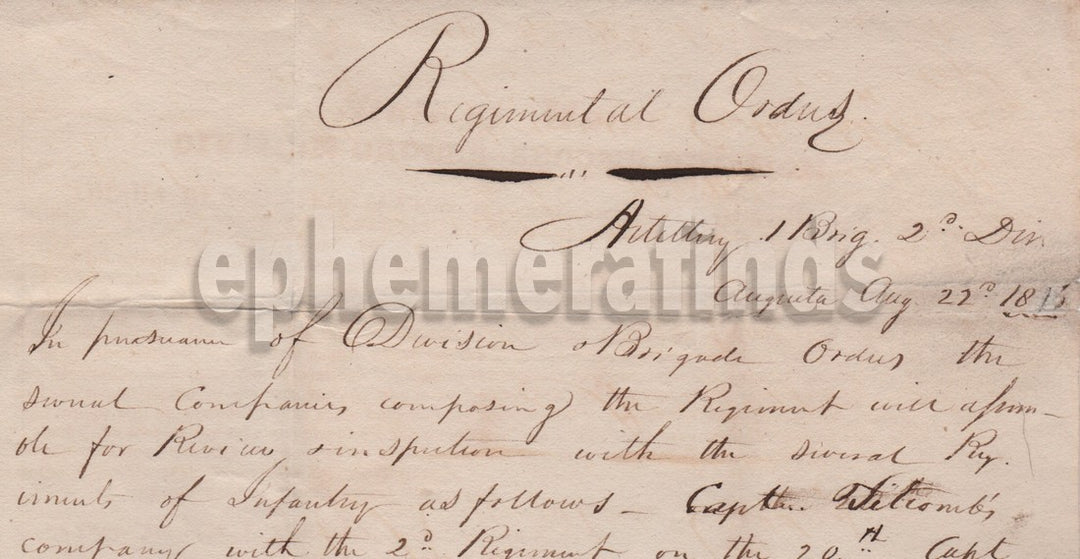 Regimental Orders.
Artillery 1 Brig. 2d Div
Augusta Aug 22d 18
ephemerafinds
In pursuance of Division & Brigade Orders the
several Companies composing the Regiment will assem-
ble for Review & inspection with the several Reg-
iments of Infantry as follows - Captn Titcomb's
company with the 2d Regiment on the 20th Capt